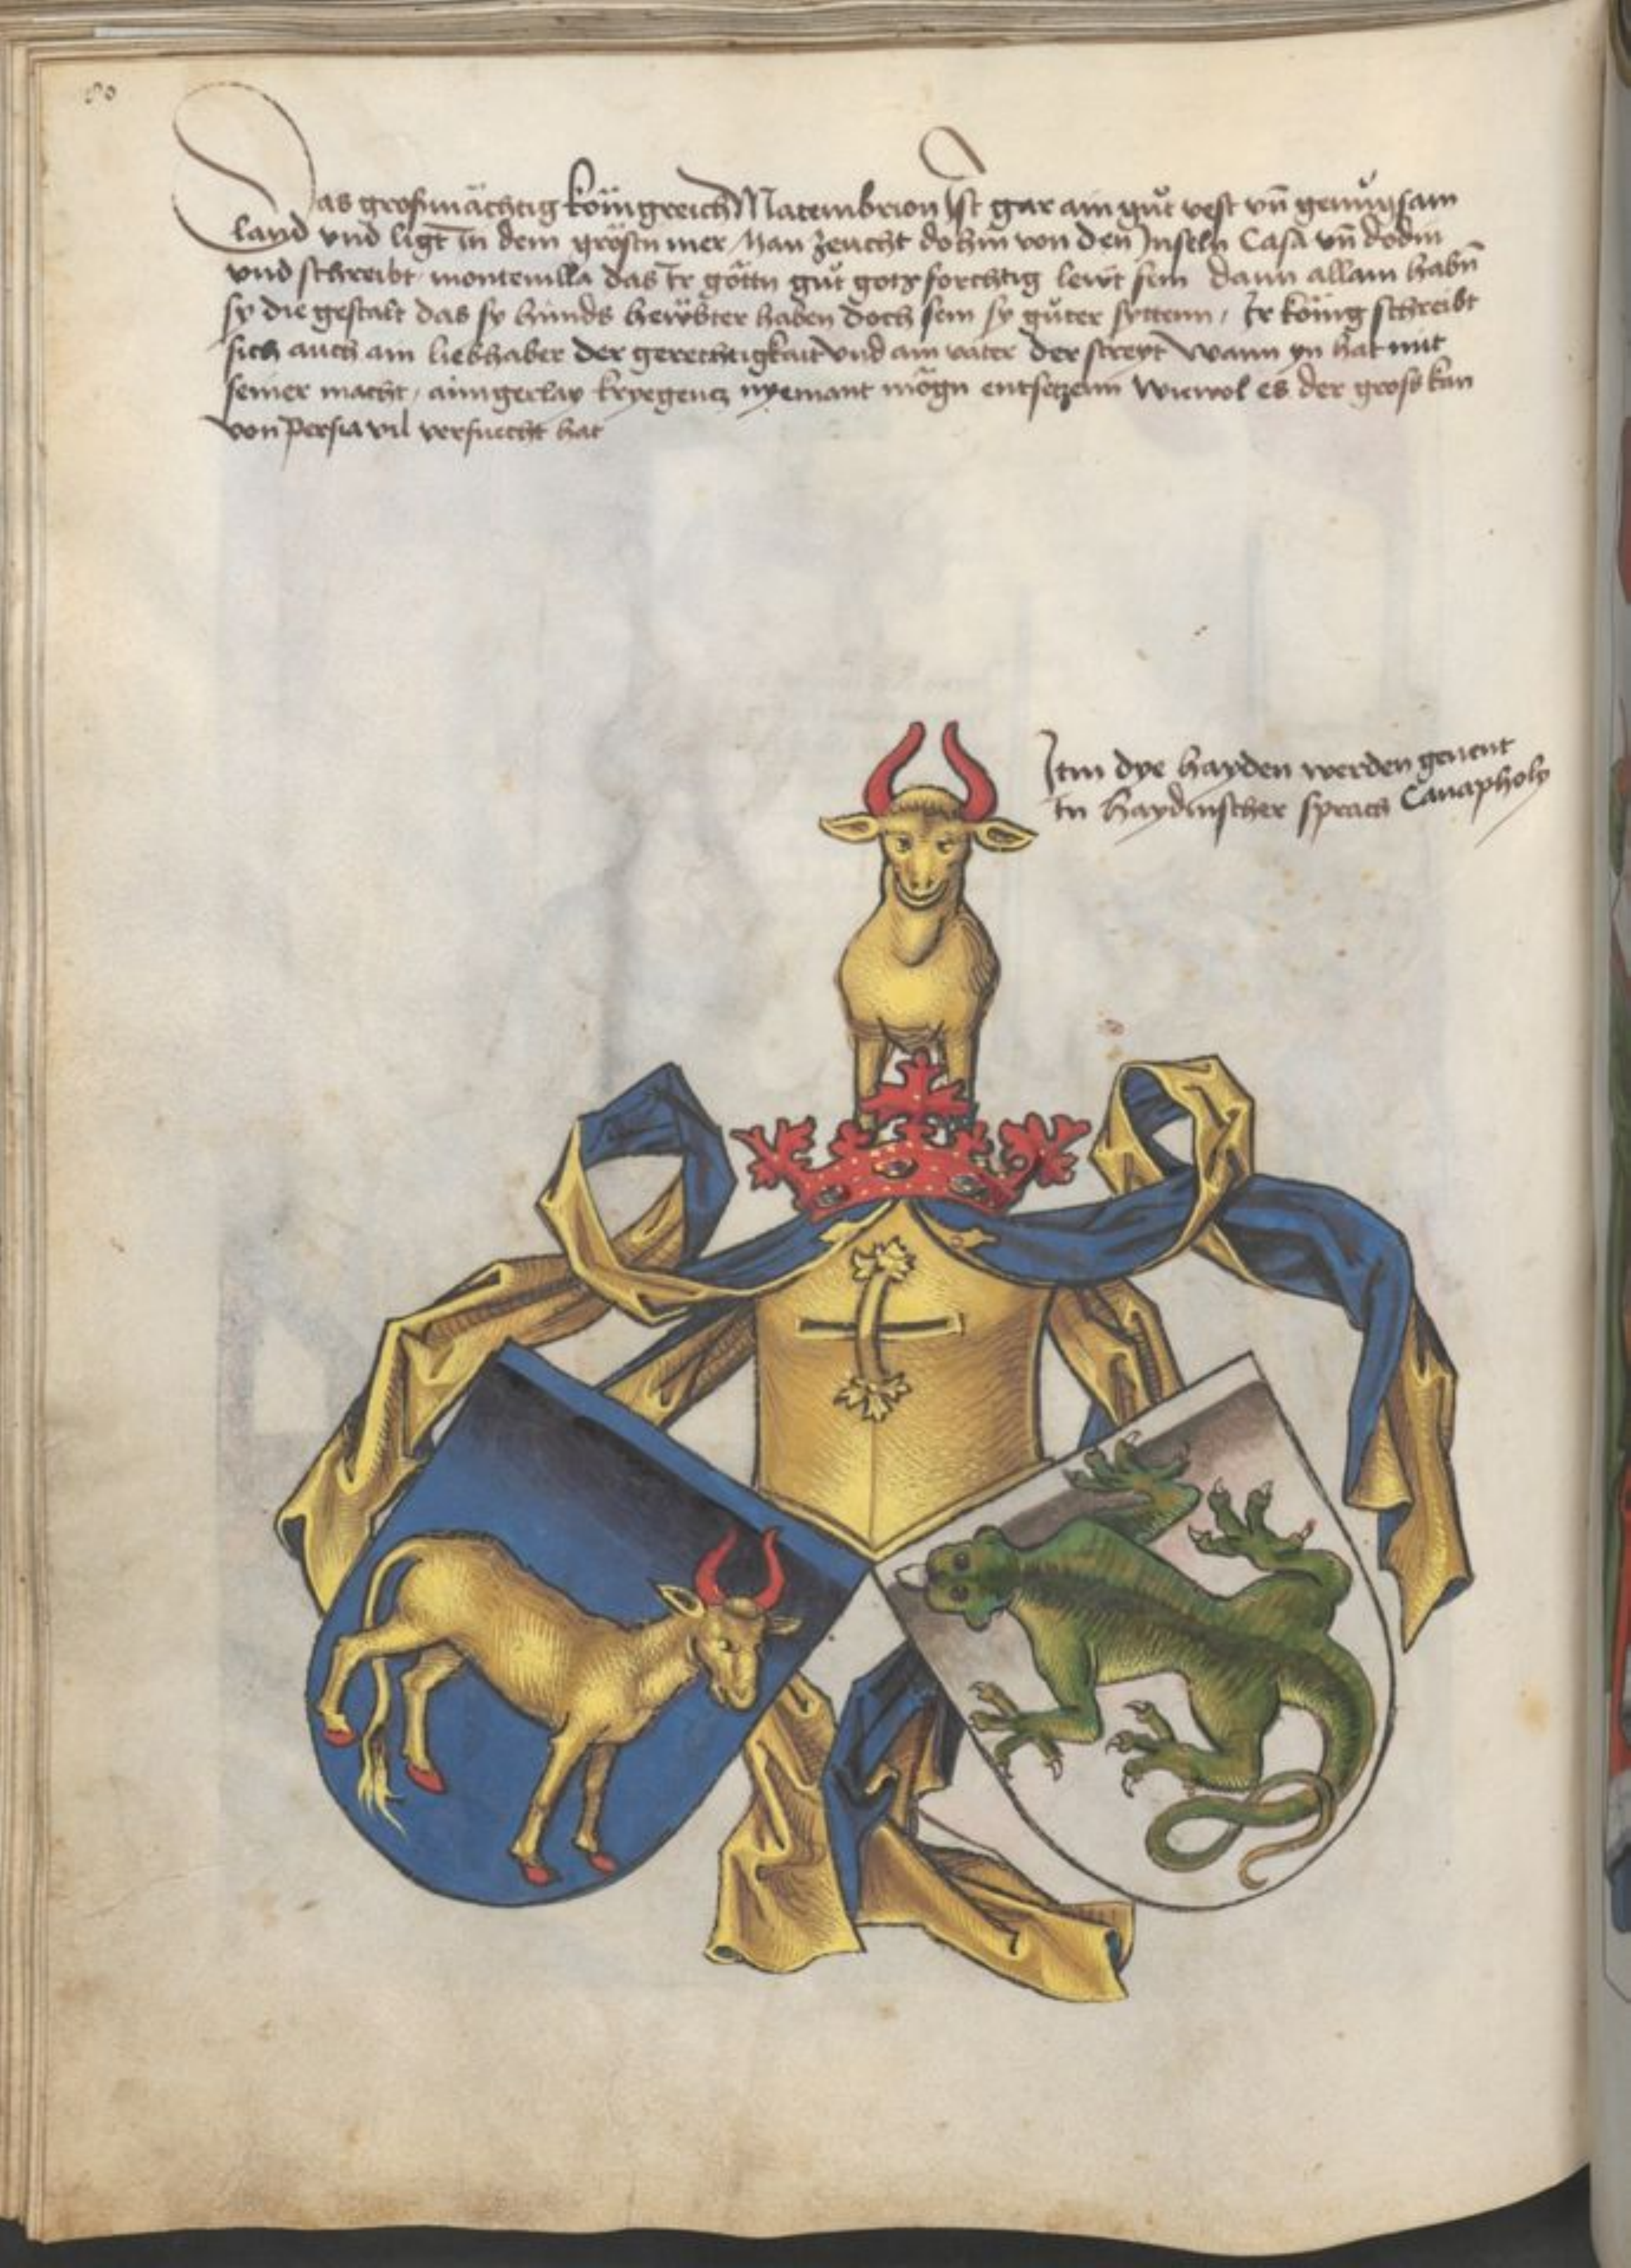 80
Das großmächtig königreich Macumbrion Ist gar ain gůt vest vn̄ genůgsam
land vnd ligt in dem grösten mer Man zeucht dohin von den Inseln Casa vn̄ dodin
vnd schreibt montevilla das Ir göttn gůt gotzforchtig lewt sein dann allain habn̄
sy die gestalt das sy hunds hewbter haben doch sein sy gůter syttenn / Ir könig schreibt
sich auch ain liebhaber der gerechtigkait vnd ain vater der streyt wann yn hat mit
seiner macht / ainigerlay kryegens nyemant mögn entsetzenn wiewol es der gross kan
von persia vil versuecht hat
Itm dye hayden werden genent
In haydnischer sprach Canapholy